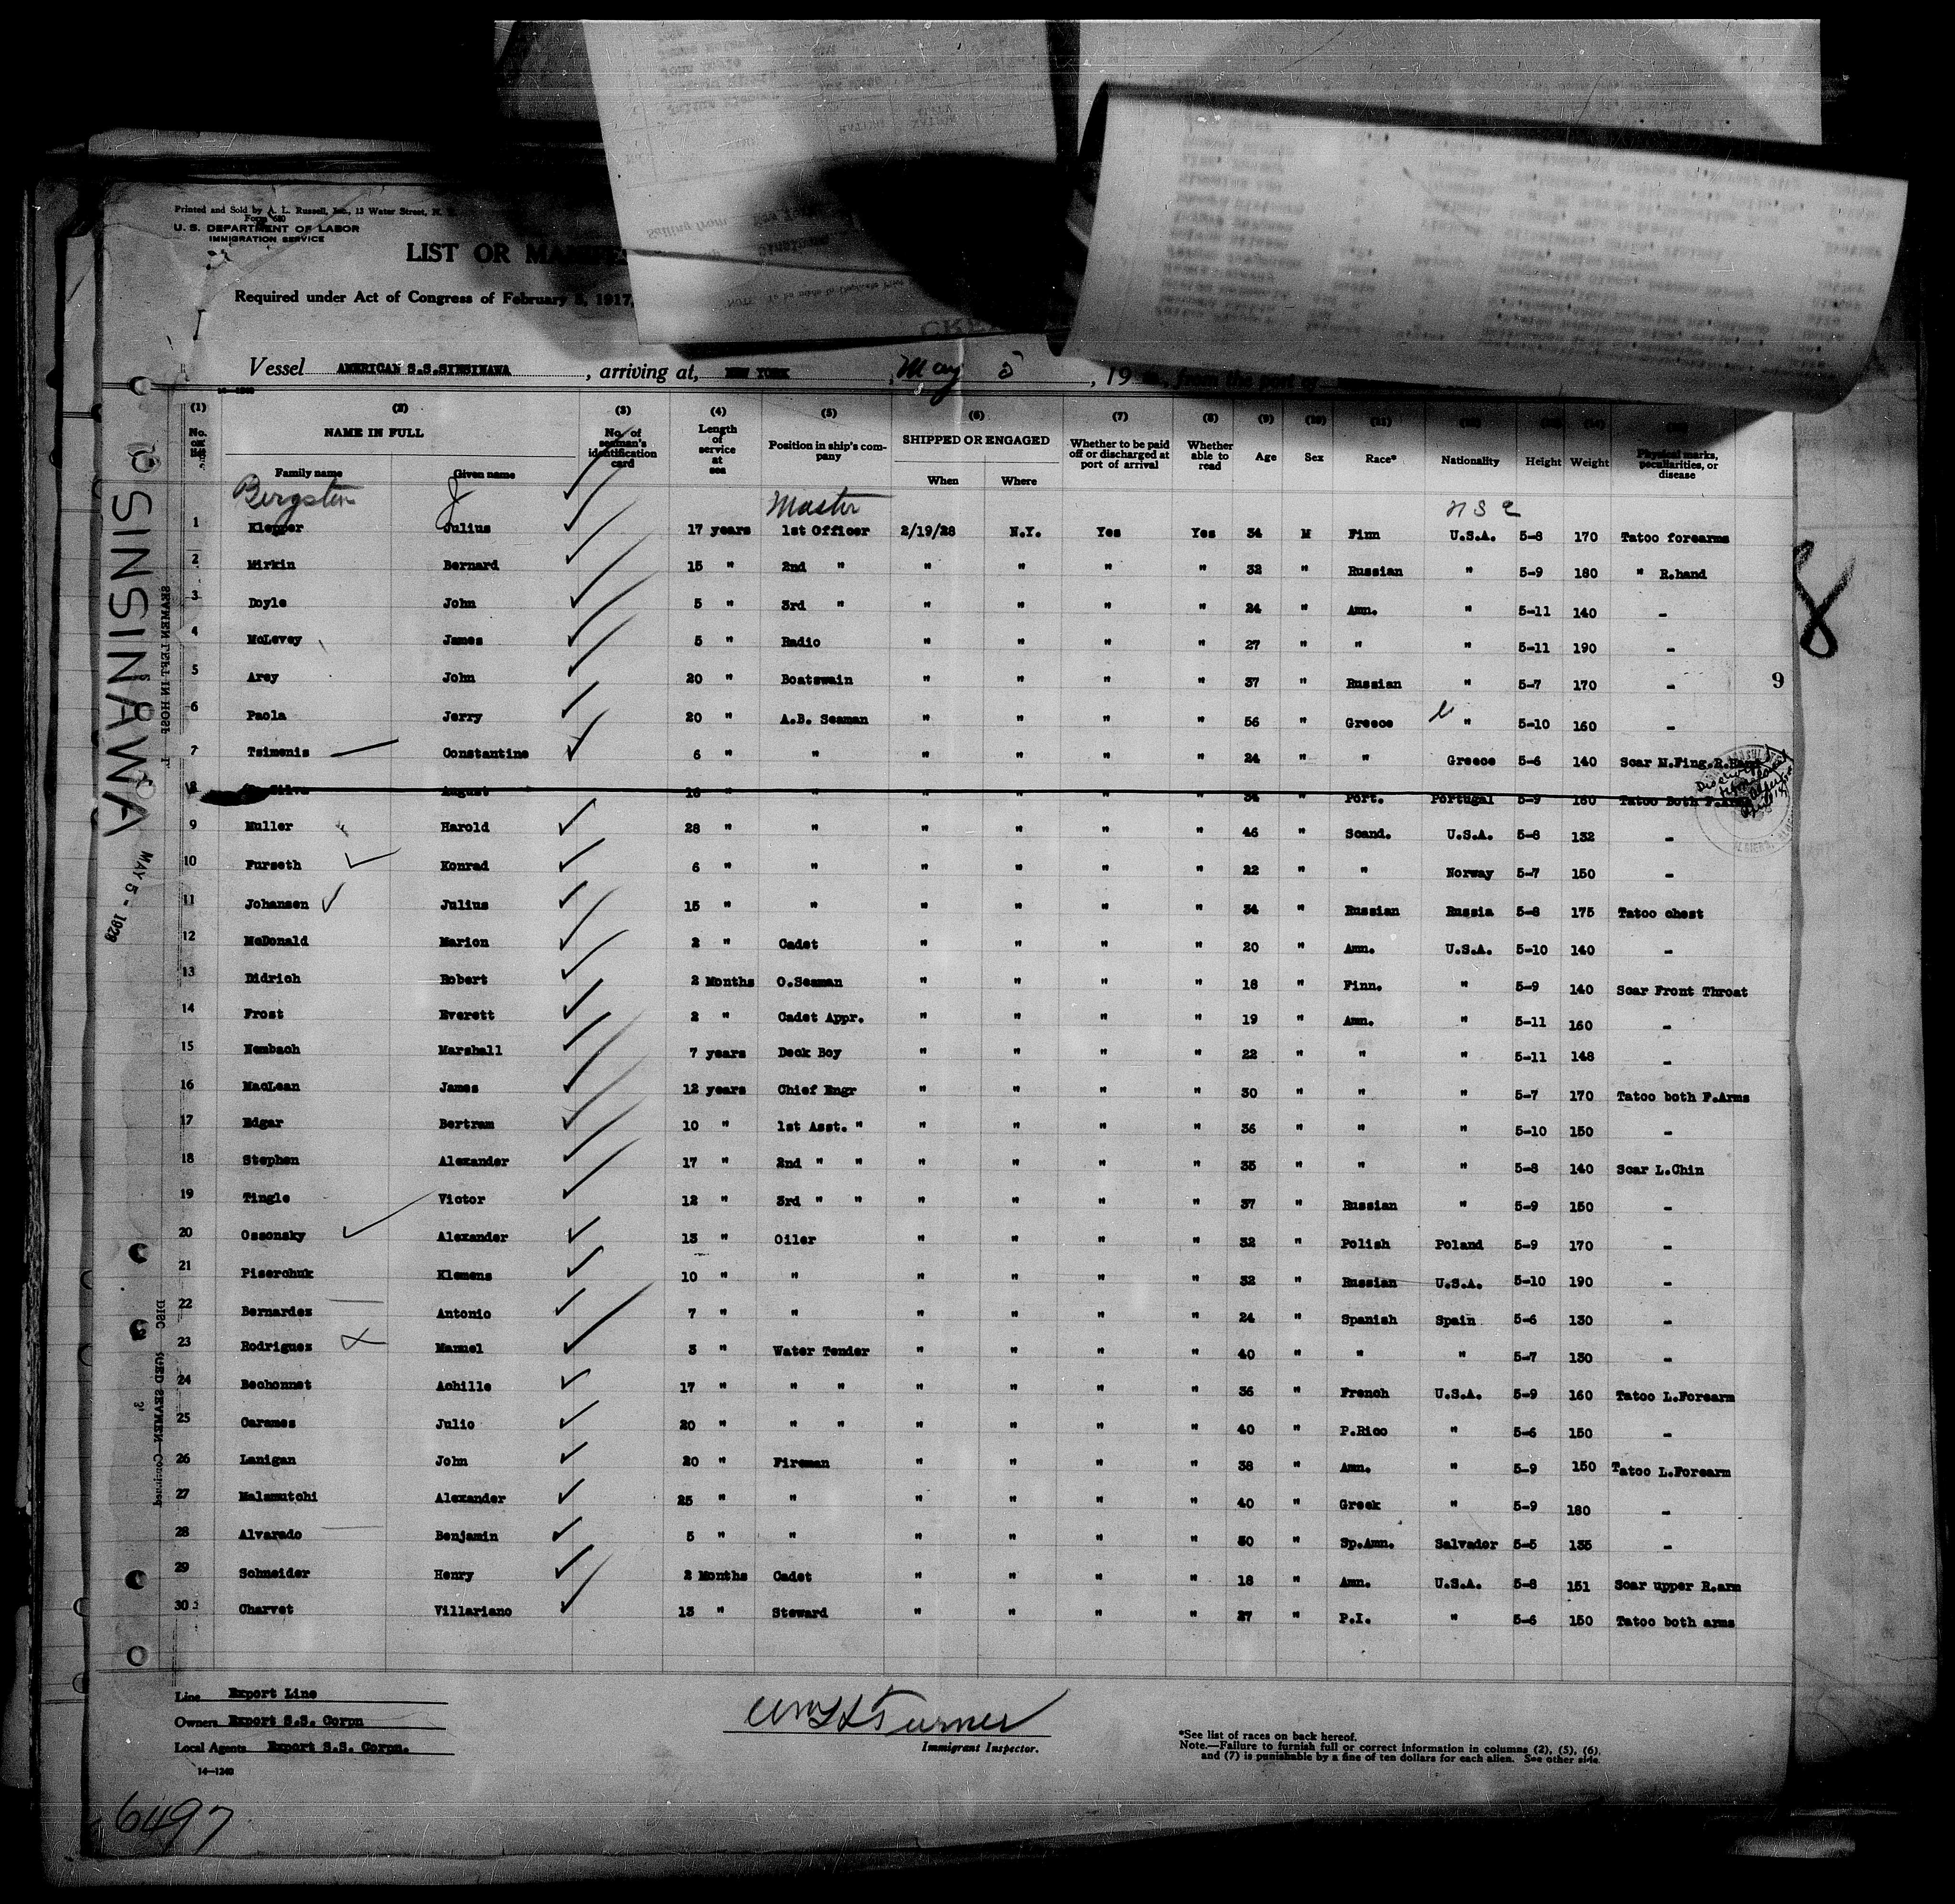 Printed and Sold by A. L. Russell, Inc., 13 Water Street, N.
Form 680
U. S. DEPARTMENT OF LABOR
IMMIGRATION SERVICE
LIST OR
Required under Act of Congress of February 5, 1917,
Vessel AMERICAN S.S.SINSINAWA , arriving at, NEW YORK , May 5 , 19 , from the port of
(1) (2) (3) (4) (5) (6) (7) (8) (9) (10) (11) (12) (13) (14)
No. on list NAME IN FULL No. of seaman's identification card Length of service at sea Position in ship's company SHIPPED OR ENGAGED Whether to be paid off or discharged at port of arrival Whether able to read Age Sex Race* Nationality Height Weight Physical marks, peculiarities, or disease
Family name Given name When Where
Bergsten J Master U S C
1 Klepper Julius 17 years 1st Officer 2/19/28 N.Y. Yes Yes 34 M Finn U.S.A. 5-8 170 Tatoo forearms
2 Mirkin Bernard 15 " 2nd " " " " " 32 " Russian " 5-9 180 " R.hand
3 Doyle John 5 " 3rd " " " " " 24 " Amn. " 5-11 140 -
4 McLevey James 5 " Radio " " " " 27 " " " 5-11 190 -
5 Arey John 20 " Boatswain " " " " 37 " Russian " 5-7 170 -
6 Paola Jerry 20 " A.B. Seaman " " " " 56 " Greece " 5-10 160 -
7 Tsimenis Constantine 6 " " " " " " 24 " " Greece 5-6 140 Scar M.Fing.R.Hand
8 Silva August 16 " " " " " " 34 " Port. Portugal 5-9 160 Tatoo Both F.Arms
9 Muller Harold 28 " " " " " " 46 " Scand. U.S.A. 5-8 132 -
10 Furseth Konrad 6 " " " " " " 22 " " Norway 5-7 150 -
11 Johansen Julius 15 " " " " " " 34 " Russian Russia 5-8 175 Tatoo chest
12 McDonald Marion 2 " Cadet " " " " 20 " Amn. U.S.A. 5-10 140 -
13 Didrich Robert 2 Months O.Seaman " " " " 18 " Finn. " 5-9 140 Scar Front Throat
14 Frost Everett 2 " Cadet Appr. " " " " 19 " Amn. " 5-11 160 -
15 Nembach Marshall 7 years Deck Boy " " " " 22 " " " 5-11 148 -
16 MacLean James 12 years Chief Engr " " " " 30 " " " 5-7 170 Tatoo both F.Arms
17 Edgar Bertram 10 " 1st Asst. " " " " " 36 " " " 5-10 150 -
18 Stephen Alexander 17 " 2nd " " " " " " 35 " " " 5-8 140 Scar L.Chin
19 Tingle Victor 12 " 3rd " " " " " " 37 " Russian " 5-9 150 -
20 Ossonsky Alexander 13 " Oiler " " " " 32 " Polish Poland 5-9 170 -
21 Piserchuk Klemens 10 " " " " " " 32 " Russian U.S.A. 5-10 190 -
22 Bernardez Antonio 7 " " " " " " 24 " Spanish Spain 5-6 130 -
23 Rodriguez Manuel 3 " Water Tender " " " " 40 " " " 5-7 130 -
24 Bechonnet Achille 17 " " " " " " " 36 " French U.S.A. 5-9 160 Tatoo L.Forearm
25 Carames Julio 20 " " " " " " " 40 " P.Rico " 5-6 150 -
26 Lanigan John 20 " Fireman " " " " 38 " Amn. " 5-9 150 Tatoo L.Forearm
27 Malamutchi Alexander 25 " " " " " " 40 " Greek " 5-9 180 -
28 Alvarado Benjamin 5 " " " " " " 30 " Sp.Amn. Salvador 5-5 135 -
29 Schneider Henry 2 Months Cadet " " " " 18 " Amn. U.S.A. 5-8 151 Scar upper R.arm
30 Charvet Villariano 13 " Steward " " " " 27 " P.I. " 5-6 150 Tatoo both arms
Line Export Line
Owners Export S.S. Corpn
Local Agents Export S.S. Corpn.
14-1240
Wm H Turner
Immigrant Inspector.
*See list of races on back hereof.
Note.—Failure to furnish full or correct information in columns (2), (5), (6), and (7) is punishable by a fine of ten dollars for each alien. See other side.
SINSINAWA
MAY 5 - 1928
8
9
6497